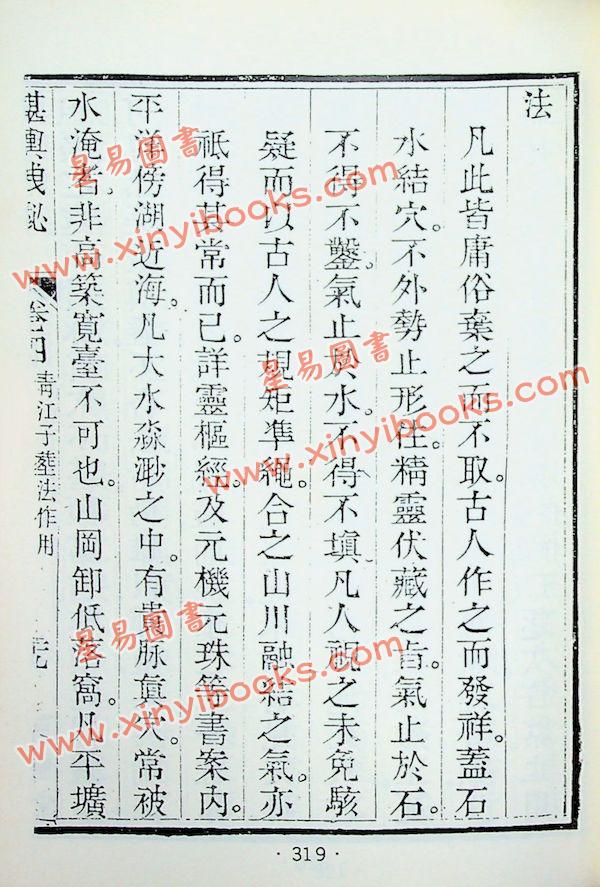 法
凡此皆庸俗棄之而不取。古人作之而發祥。蓋石
水結穴。不外勢止形住。精靈伏藏之旨。氣止於石。
不得不鑿。氣止於水。不得不填。凡人視之未免駭
疑。而以古人之規矩準繩。合之山川融結之氣。亦
祗得其常而已。詳靈樞經。及元機元珠等書案內。
平洋傍湖近海。凡大水淼渺之中。有貴脉眞穴。常被
水淹者。非高築寬臺不可也。山岡卸低落窩。凡平壙
堪輿洩秘 卷六四 青江子塟法作用
星易圖書
www.xinyibooks.com
星易圖書
www.xinyibooks.com
星易圖書
www.xinyibooks.com
· 319 ·